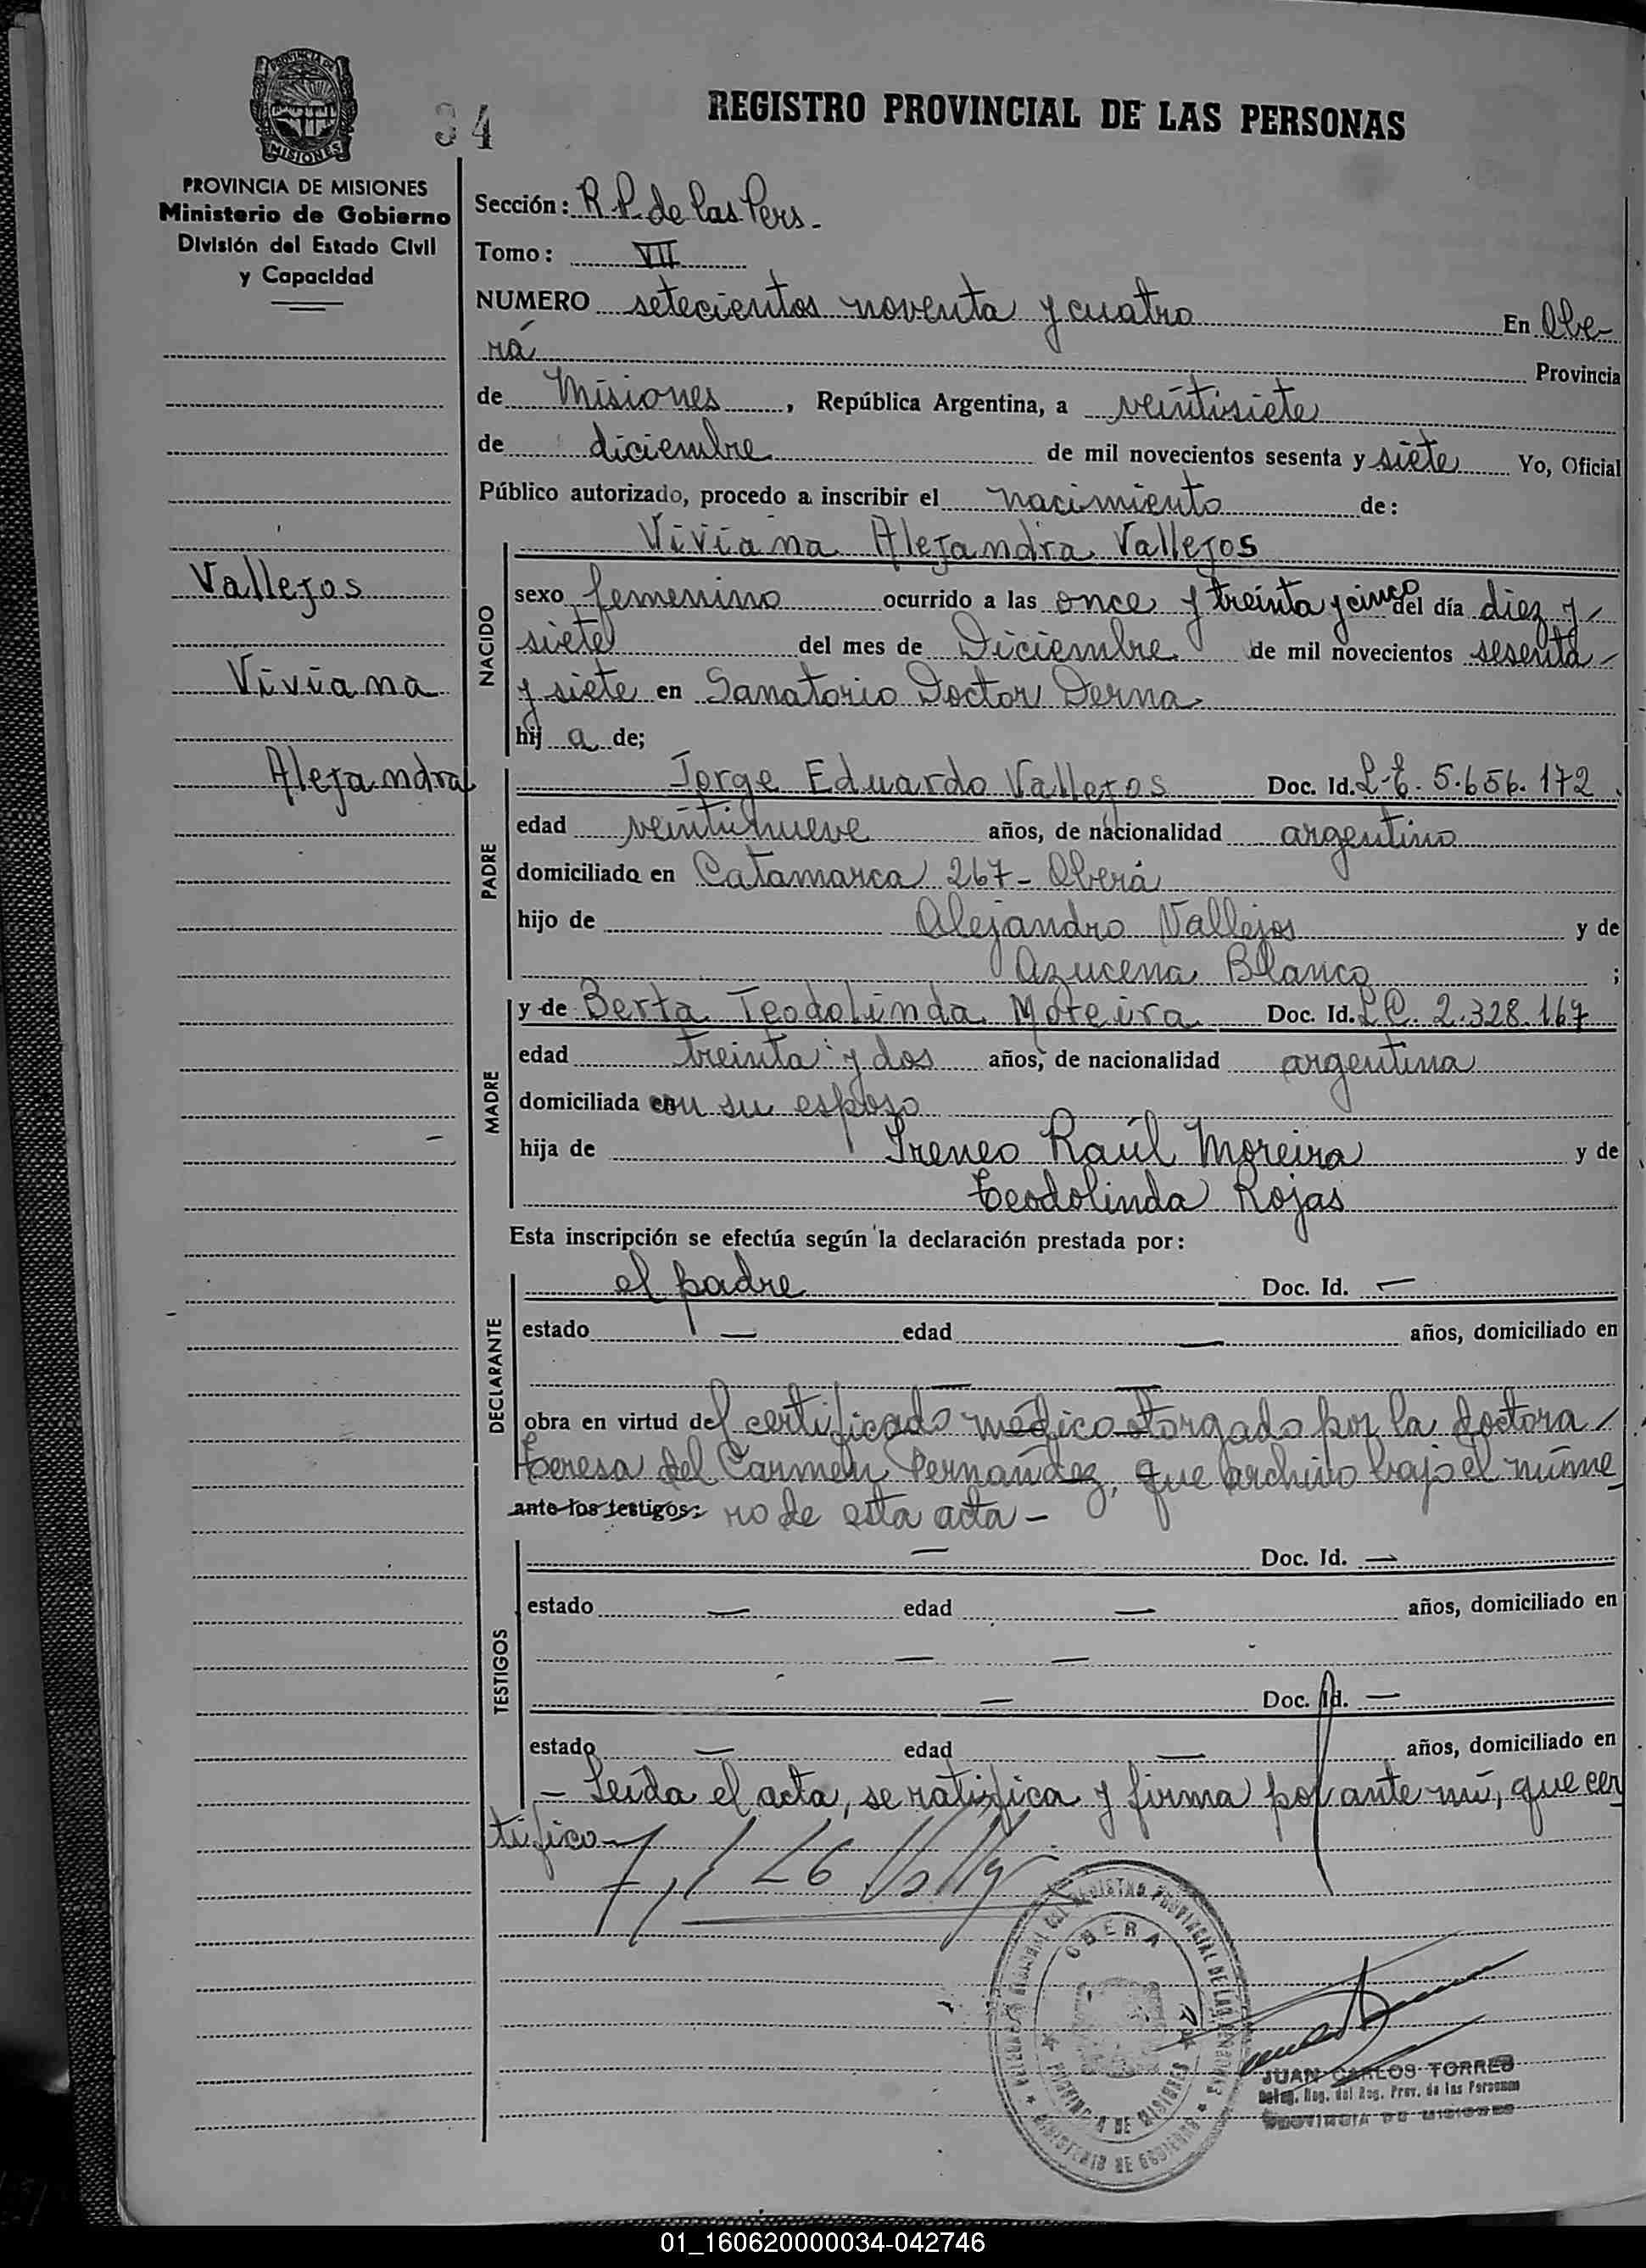 34
REGISTRO PROVINCIAL DE LAS PERSONAS
MISIONES
PROVINCIA DE MISIONES
Ministerio de Gobierno
División del Estado Civil
y Capacidad
Vallejos
Viviana
Alejandra
Sección: R.P. de las Pers.
Tomo: VII
NUMERO setecientos noventa y cuatro En Obe-
rá Provincia
de Misiones, República Argentina, a veintisiete
de diciembre de mil novecientos sesenta y siete Yo, Oficial
Público autorizado, procedo a inscribir el nacimiento de:
NACIDO
Viviana Alejandra Vallejos
sexo femenino ocurrido a las once y treinta y cinco del día diez y
siete del mes de Diciembre de mil novecientos sesenta
y siete en Sanatorio Doctor Derna
hij a de;
PADRE
Jorge Eduardo Vallejos Doc. Id. L.E. 5.656.172
edad veintinueve años, de nacionalidad argentino
domiciliado en Catamarca 267 - Oberá
hijo de Alejandro Vallejos y de
Azucena Blanco ;
MADRE
y de Berta Teodolinda Moreira Doc. Id. L.C. 2.328.167
edad treinta y dos años, de nacionalidad argentina
domiciliada con su esposo
hija de Ireneo Raúl Moreira y de
Teodolinda Rojas
Esta inscripción se efectúa según la declaración prestada por:
DECLARANTE
el padre Doc. Id. —
estado — edad — años, domiciliado en
— —
obra en virtud del certificado médico otorgado por la doctora
Teresa del Carmen Fernandez, que archivo bajo el núme
ante los testigos: ro de esta acta -
TESTIGOS
— Doc. Id. —
estado — edad — años, domiciliado en
— —
— Doc. Id. —
estado — edad — años, domiciliado en
- Leída el acta, se ratifica y firma por ante mí, que cer
tifico -
OBERA
PROVINCIA DE MISIONES
MINISTERIO DE GOBIERNO
JUAN CARLOS TORRES
Deleg. Reg. del Reg. Prov. de las Personas
PROVINCIA DE MISIONES
01_160620000034-042746